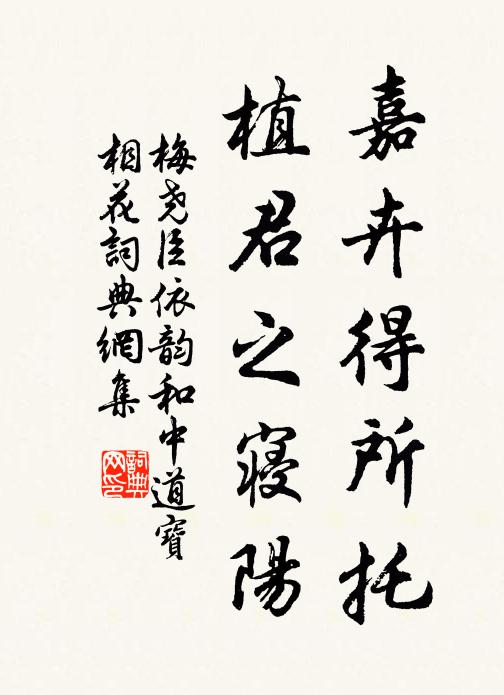 嘉卉得所托
植君之寢陽
梅尧臣依韵和中道寶
相花詞典網集
詞典网印